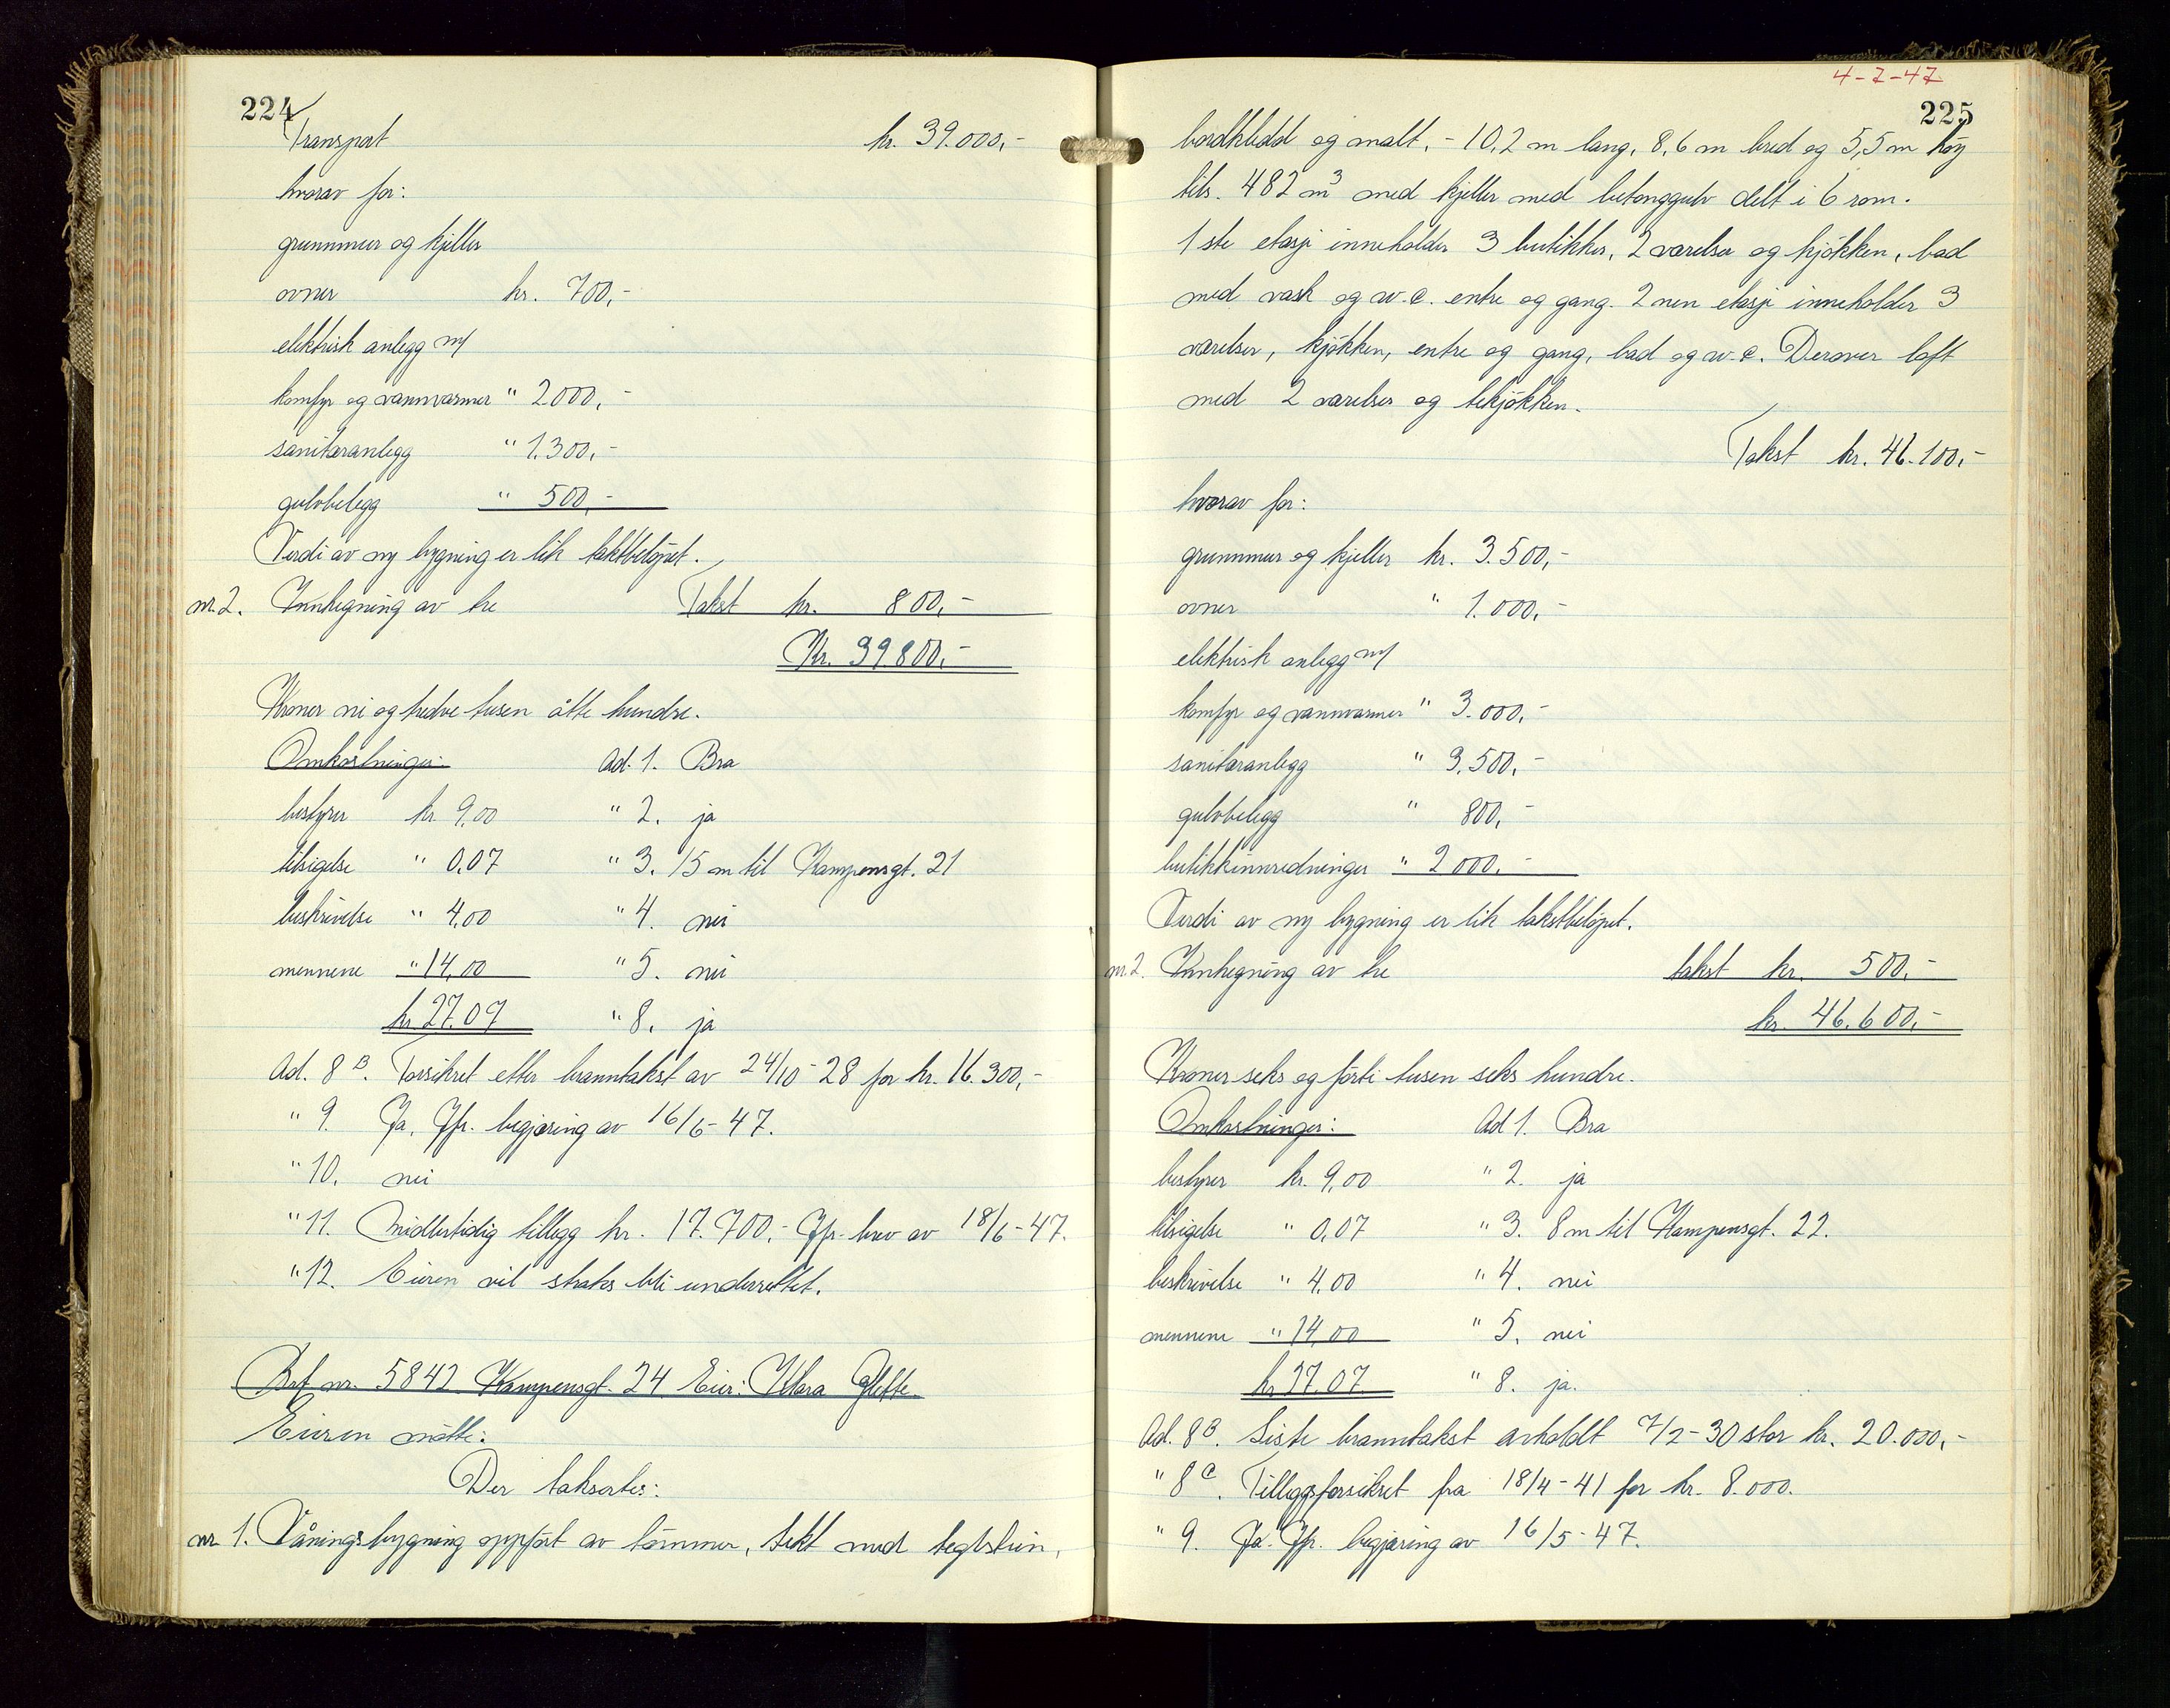 224
Transport kr. 39.000,-
hvorav for:
grunnmur og kjeller
ovner kr. 700,-
elektrisk anlegg m/
komfyr og vannvarmer " 2.000,-
sanitæranlegg " 1.300,-
gulvbelegg " 500,-
Verdi av ny bygning er lik takstbeløpet.
nr. 2. Innhegning av tre Takst kr. 800,-
Kr. 39.800,-
Kroner ni og tredve tusen åtte hundre.
Omkostninger: Ad. 1. Bra
bestyrer kr. 9,00 " 2. ja
tilsigelse " 0,07 " 3. 15 m til Kampensgt. 21
beskrivelse " 4,00 " 4. nei
mennene " 14,00 " 5. nei
kr 27.07 " 8. ja
Ad. 8 B. Forsikret etter branntakst av 24/10-28 for kr. 16.300,-
" 9. Ja. Jfr. begjæring av 16/6-47.
" 10. nei
" 11. Midlertidig tillegg kr. 17.700,- Jfr. brev av 18/6-47.
" 12. Eieren vil straks bli underrettet.
Brf. nr. 5842 Kampensgt. 24 Eier: Klara Glette
Eieren møtte:
Der taksertes:
nr 1. Våningsbygning oppført av tømmer, tekt med teglstein,
4-7-47
225
bordkledd og malt, - 10,2 m lang, 8,6 m bred og 5,5 m høy
tils. 482 m³ med kjeller med betonggulv delt i 6 rom.
1 ste etasje inneholder 3 butikker, 2 værelser og kjøkken, bad
med vask og w.c. entre og gang. 2 nen etasje inneholder 3
værelser, kjøkken, entre og gang, bad og w.c. Derover loft
med 2 værelser og tekjøkken.
Takst kr. 46.100,-
hvorav for:
grunnmur og kjeller kr. 3.500,-
ovner " 1.000,-
elektrisk anlegg m/
komfyr og vannvarmer " 3.000,-
sanitæranlegg " 3.500,-
gulvbelegg " 800,-
butikkinnredninger " 2000,-
Verdi av ny bygning er lik takstbeløpet.
nr. 2. Innhegning av tre takst kr. 500,-
kr. 46.600,-
Kroner seks og førti tusen seks hundre.
Omkostninger: Ad 1. Bra
bestyrer kr. 9,00 " 2. ja
tilsigelse " 0,07 " 3. 8 m til Kampensgt. 22.
beskrivelse " 4,00 " 4. nei
mennene " 14,00 " 5. nei
kr 27.07 " 8. ja.
Ad. 8 B. Siste branntakst avholdt 7/2-30 stor kr. 20.000,-
" 8 C. Tilleggsforsikret fra 18/4-41 for kr. 8.000.
" 9. Ja. Jfr. begjæring av 16/5-47.